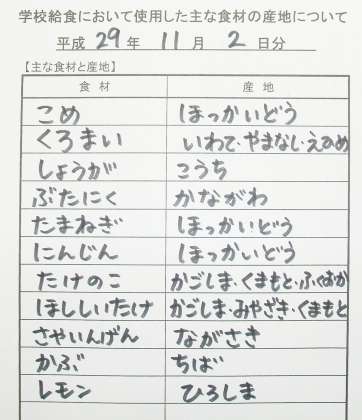 学校給食において使用した主な食材の産地について
平成 29 年 11 月 2 日分
【主な食材と産地】
食材 産地
こめ ほっかいどう
くろまい いわて・やまなし・えひめ
しょうが こうち
ぶたにく かながわ
たまねぎ ほっかいどう
にんじん ほっかいどう
たけのこ かごしま・くまもと・ふくおか
ほししいたけ かごしま・みやざき・くまもと
さやいんげん ながさき
かぶ ちば
レモン ひろしま